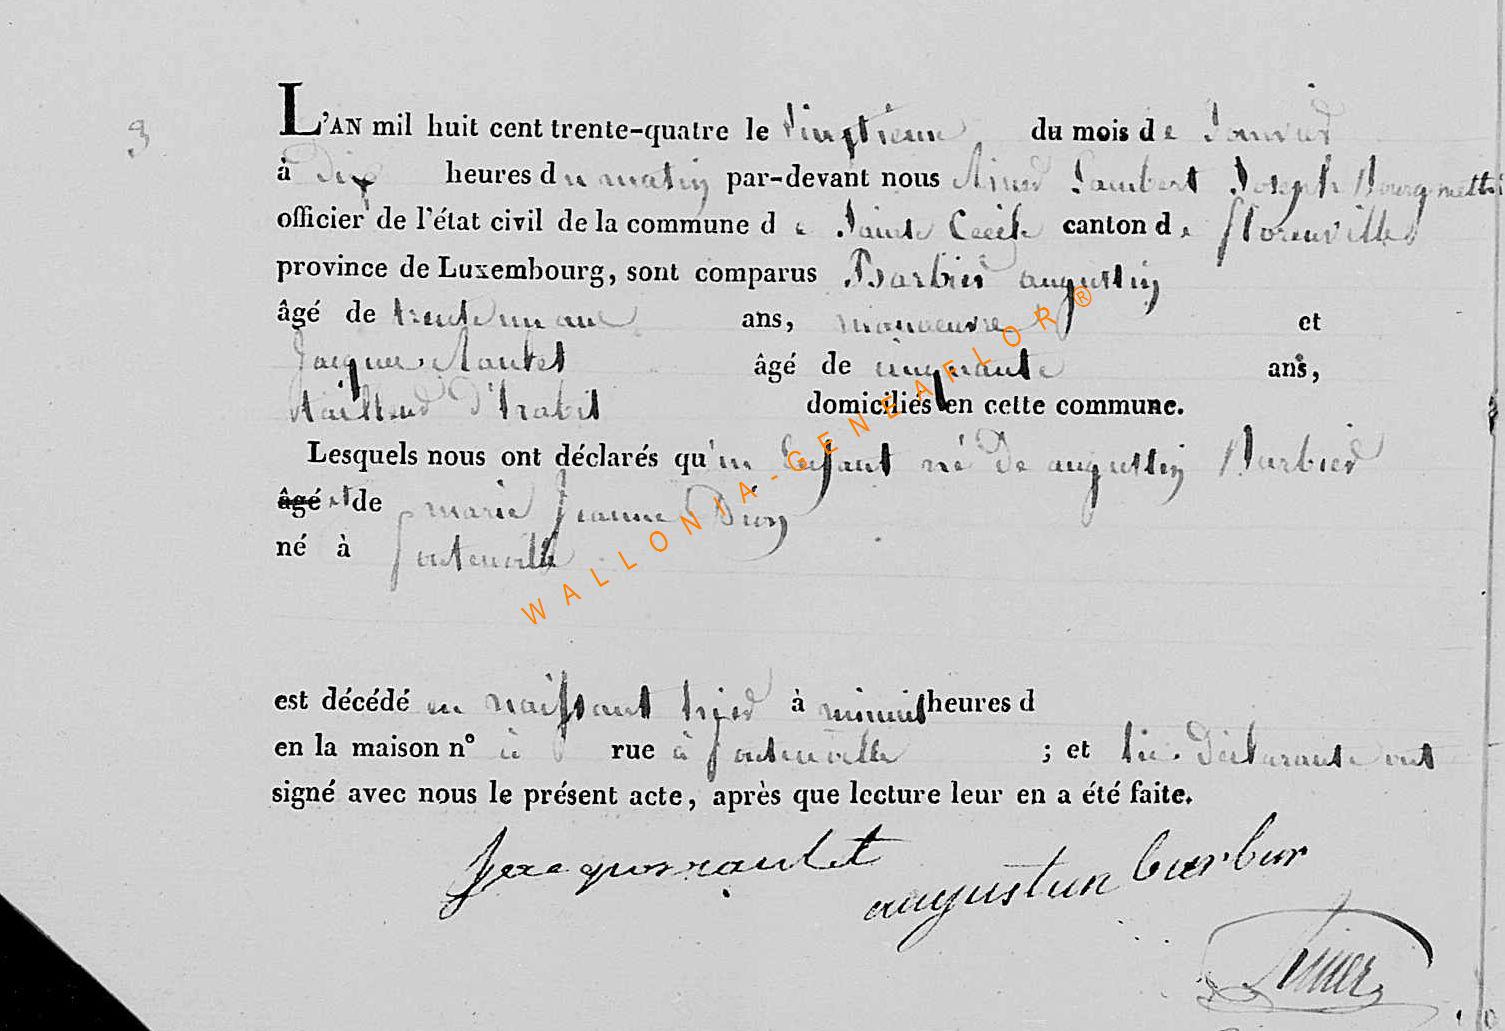 3
L'AN mil huit cent trente-quatre le vingtieme du mois de Janvier
à dix heures du matin par-devant nous Lambert Joseph Bourgmettre
officier de l'état civil de la commune de Sainte Cecile canton de florenville
province de Luxembourg, sont comparus Barbier augustin
âgé de trente un ans, manoeuvre et
Jacque âgé de cinquante ans,
tailleur d'habit domiciliés en cette commune.
Lesquels nous ont déclarés qu'un Enfant né de augustin Barbier
âgé et de marie Jeanne Dion
né à fontenoille
est décédé en naissant hier à minuit heures d
en la maison n° à rue à fontenoille ; et les declarants ont
signé avec nous le présent acte, après que lecture leur en a été faite.
augustin barbier
WALLONIA-GENEAFLOR®